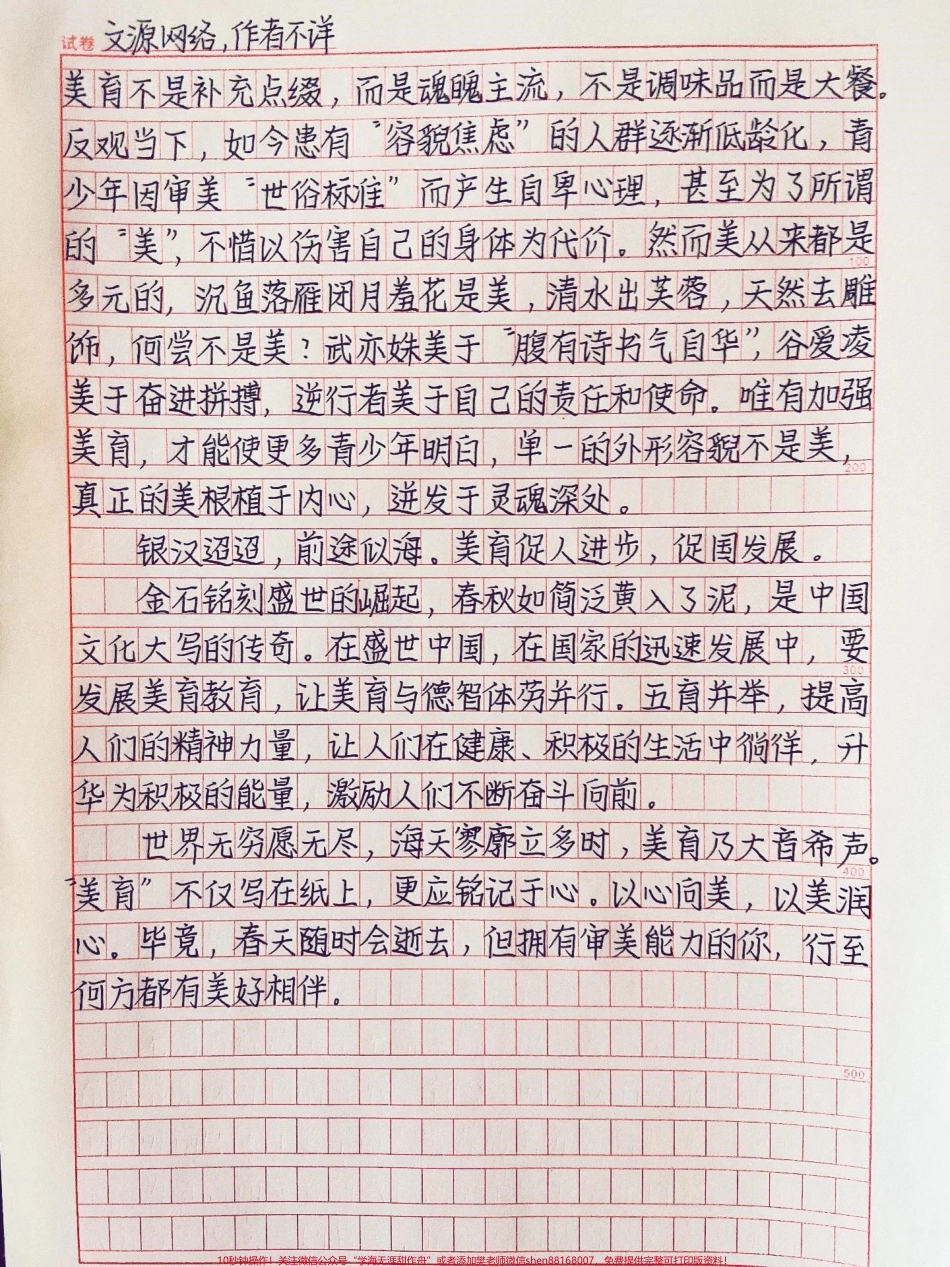 试卷 文源网络,作者不详
美育不是补充点缀，而是魂魄主流，不是调味品而是大餐。
反观当下，如今患有“容貌焦虑”的人群逐渐低龄化，青
少年因审美“世俗标准”而产生自卑心理，甚至为了所谓
的“美”，不惜以伤害自己的身体为代价。然而美从来都是
100
多元的，沉鱼落雁闭月羞花是美，清水出芙蓉，天然去雕
饰，何尝不是美？武亦姝美于“腹有诗书气自华”，谷爱凌
美于奋进拼搏，逆行者美于自己的责任和使命。唯有加强
美育，才能使更多青少年明白，单一的外形容貌不是美，
200
真正的美根植于内心，迸发于灵魂深处。
银汉迢迢，前途似海。美育促人进步，促国发展。
金石铭刻盛世的崛起，春秋如简泛黄入了泥，是中国
文化大写的传奇。在盛世中国，在国家的迅速发展中，要
300
发展美育教育，让美育与德智体劳并行。五育并举，提高
人们的精神力量，让人们在健康、积极的生活中徜徉，升
华为积极的能量，激励人们不断奋斗向前。
世界无穷愿无尽，海天寥廓立多时，美育乃大音希声。
400
“美育”不仅写在纸上，更应铭记于心。以心向美，以美润
心。毕竟，春天随时会逝去，但拥有审美能力的你，行至
何方都有美好相伴。
500
10秒钟操作！关注微信公众号“学海无涯甜作舟”或者添加樊老师微信shen88168007，免费提供完整可打印版资料！